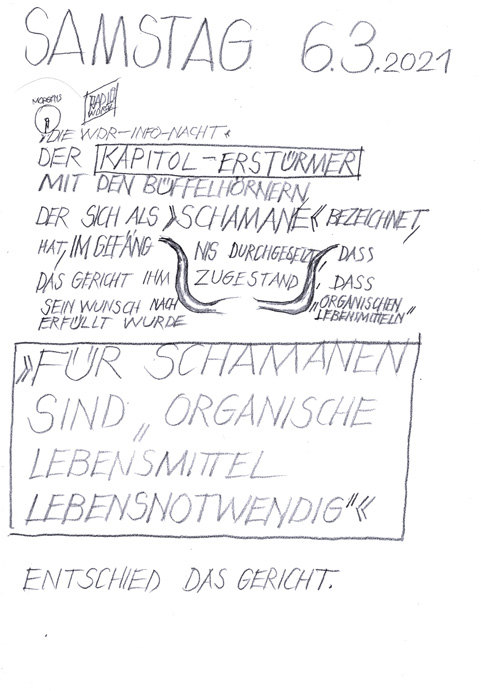 SAMSTAG 6.3.2021
MORGENS
RADIO
»DIE WDR-INFO-NACHT«
DER KAPITOL-ERSTÜRMER
MIT DEN BÜFFELHÖRNERN,
DER SICH ALS »SCHAMANE« BEZEICHNET,
HAT, IM GEFÄNGNIS DURCHGESETZT, DASS
DAS GERICHT IHM ZUGESTAND, DASS
SEIN WUNSCH NACH „ORGANISCHEN
LEBENSMITTELN"
ERFÜLLT WURDE
»FÜR SCHAMANEN
SIND „ORGANISCHE
LEBENSMITTEL
LEBENSNOTWENDIG"«
ENTSCHIED DAS GERICHT.